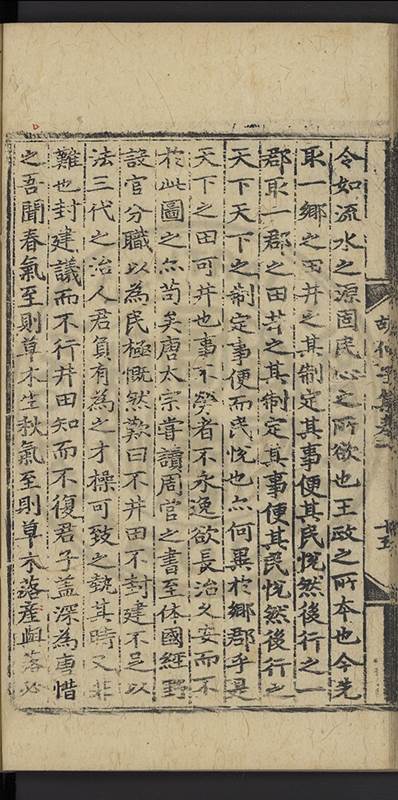 令如流水之源固民心之所欲也王政之所本也今先
取一鄉之田井之其制定其事便其民悅然後行之一
郡取一郡之田井之其制定其事便其民悅然後行之
天下天下之制定事便而民悅也亦何異於鄉郡乎是
天下之田可井也事不勞者不永逸欲長治久安而不
於此圖之亦苟矣唐太宗嘗讀周官之書至体國經野
設官分職以為民極慨然歎曰不井田不封建不足以
法三代之治人君負有為之才操可致之勢其時又非
難也封建議而不行井田知而不復君子盖深為事惜
之吾聞春氣至則草木生秋氣至則草木落産與落必
胡仲子集卷之
十五